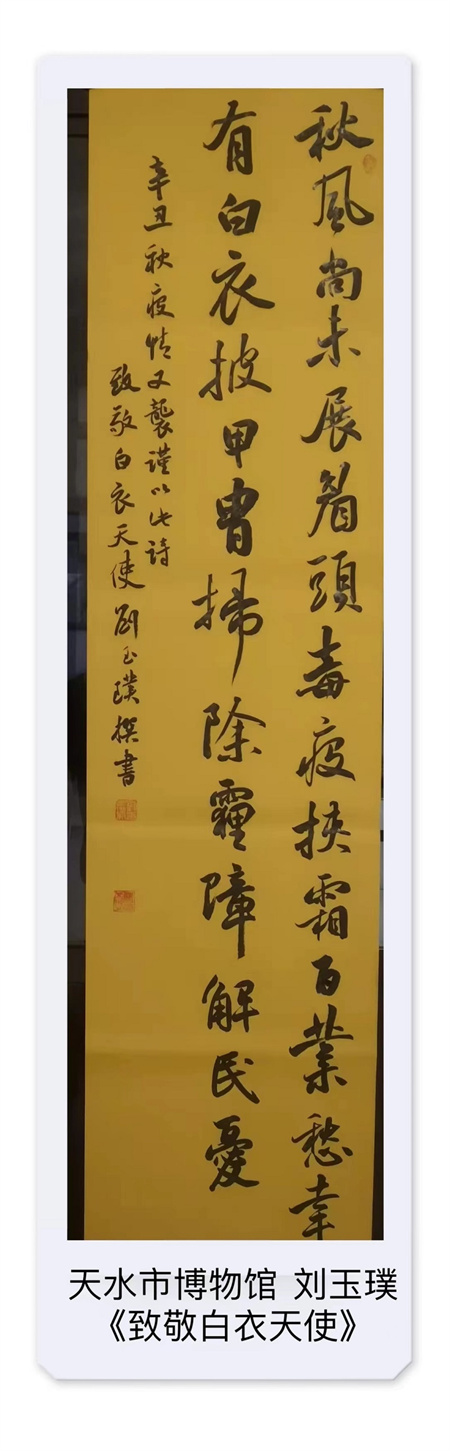 秋风尚未展眉頭毒疫挟霜百業愁幸
有白衣披甲胄掃除霾障解民憂
辛丑秋疫情又襲谨以此詩
致敬白衣天使劉玉璞撰書
天水市博物馆 刘玉璞
《致敬白衣天使》